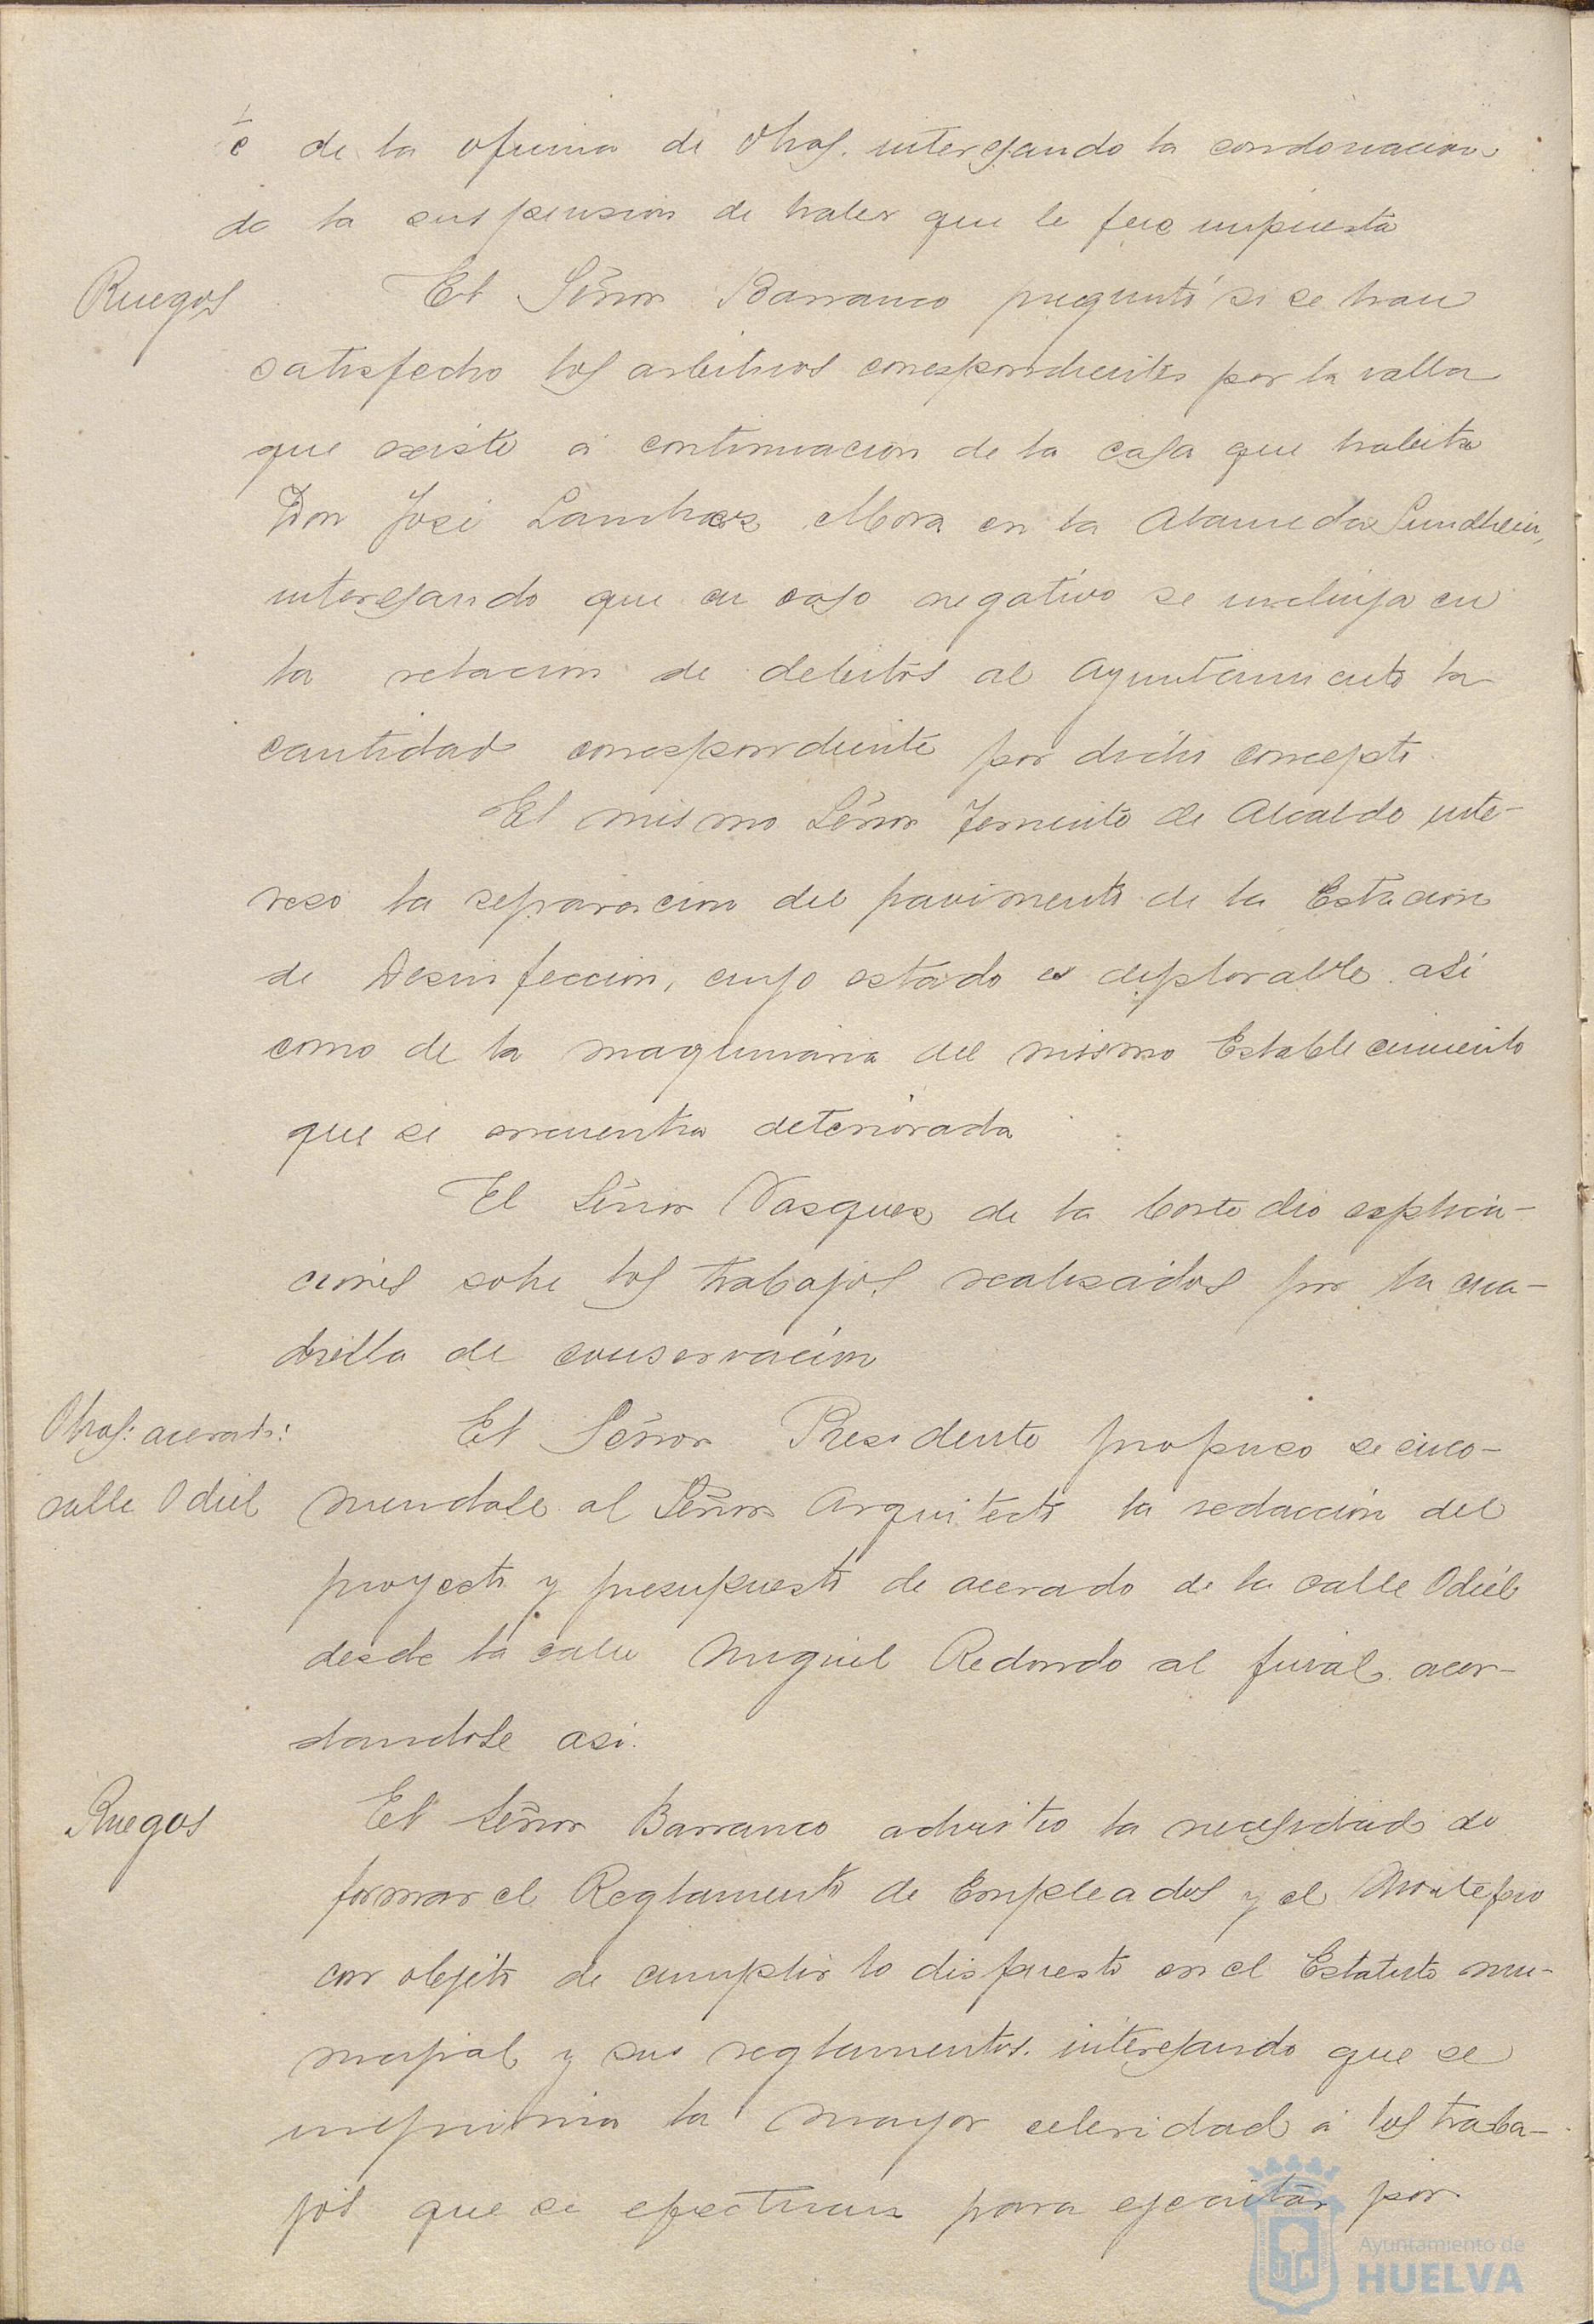 é de la oficina de Obras. interesando la condonacion
de la suspension de haber que le fue impuesta
Ruegos
El Señor Barranco preguntó si se han
satisfecho los arbitrios correspondientes por la valla
que existe á continuacion de la casa que habita
Don José Mora en la Alameda Sundheim,
interesando que en caso negativo se incluya en
la relacion de debitos al Ayuntamiento la
cantidad correspondiente por dicho concepto.
El mismo Señor Teniente de Alcalde inte-
reso la reparacion del pavimento de la Estacion
de Desinfeccion, cuyo estado es deplorable. asi
como de la maquinaria del mismo Establecimiento
que se encuentra deteriorada
El Señor Vasquez de la Corte dio explica-
ciones sobre los trabajos realizados por la cua-
drilla de conservacion
Obras: acerado:
calle Odiel
El Señor Presidente propuso se enco-
mendase al Señor Arquitecto la redacción del
proyecto y presupuesto de acerado de la calle Odiel
desde la calle Miguel Redondo al final. acor-
dandose asi.
Ruegos
El Señor Barranco advirtio la necesidad de
formar el Reglamento de Empleados y el Montepio
con objeto de cumplir lo dispuesto en el Estatuto mu-
nicipal y sus reglamentos. interesando que se
imprima la mayor celeridad á los traba-
jos que se efectuan para ejecutar por
Ayuntamiento de
HUELVA